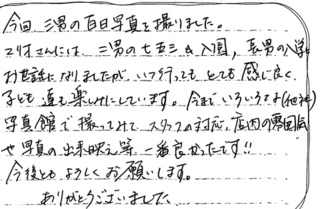 今回、三男の百日写真を撮りました。
こりすさんには、三男の七五三&入園、長男の入学
お世話になりましたが、いつ行っても とても 感じ良く、
子ども達も楽しみにしています。今までいろいろな(他社)
写真館で撮ってみて、スタッフの対応、店内の雰囲気
や写真の出来映え等、一番良かったです!!
今後とも、よろしくお願いします。
ありがとうございました。